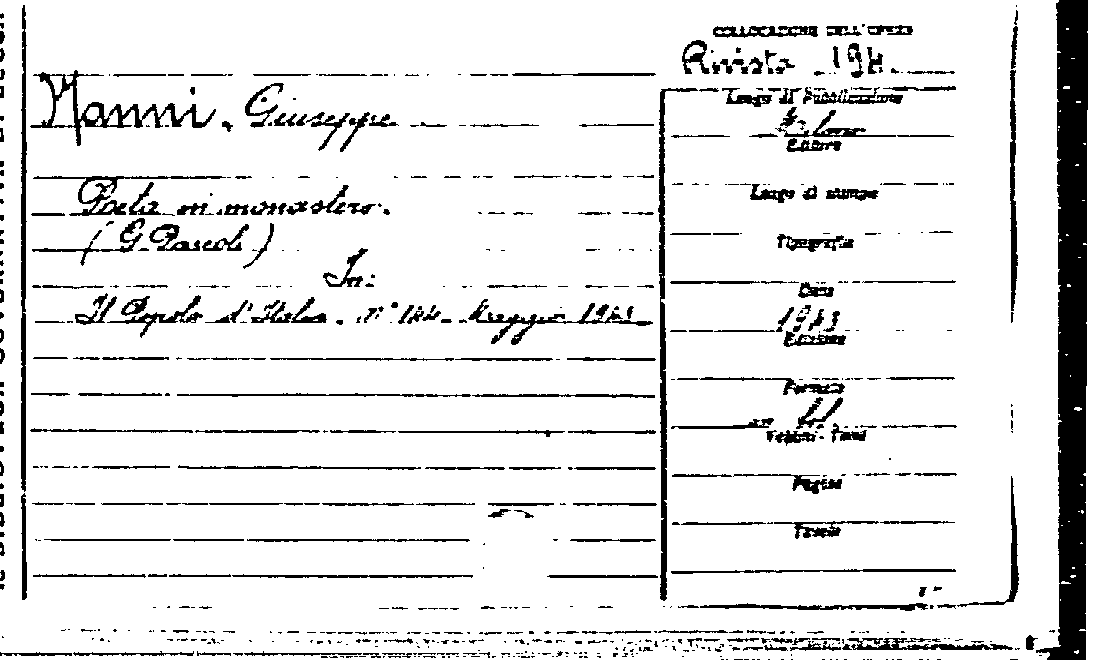 COLLOCAZIONE DELL'OPERA
Rivista 194.
Nanni, Giuseppe
Poeta in monastero.
(G. Pascoli)
In:
Il Popolo d'Italia. n° 144. Maggio 1943
Luogo di Pubblicazione
Milano
Editore
Luogo di stampa
Tipografia
Data
1943
Edizione
Formato
in
Volumi - Tomi
Pagine
Tavole